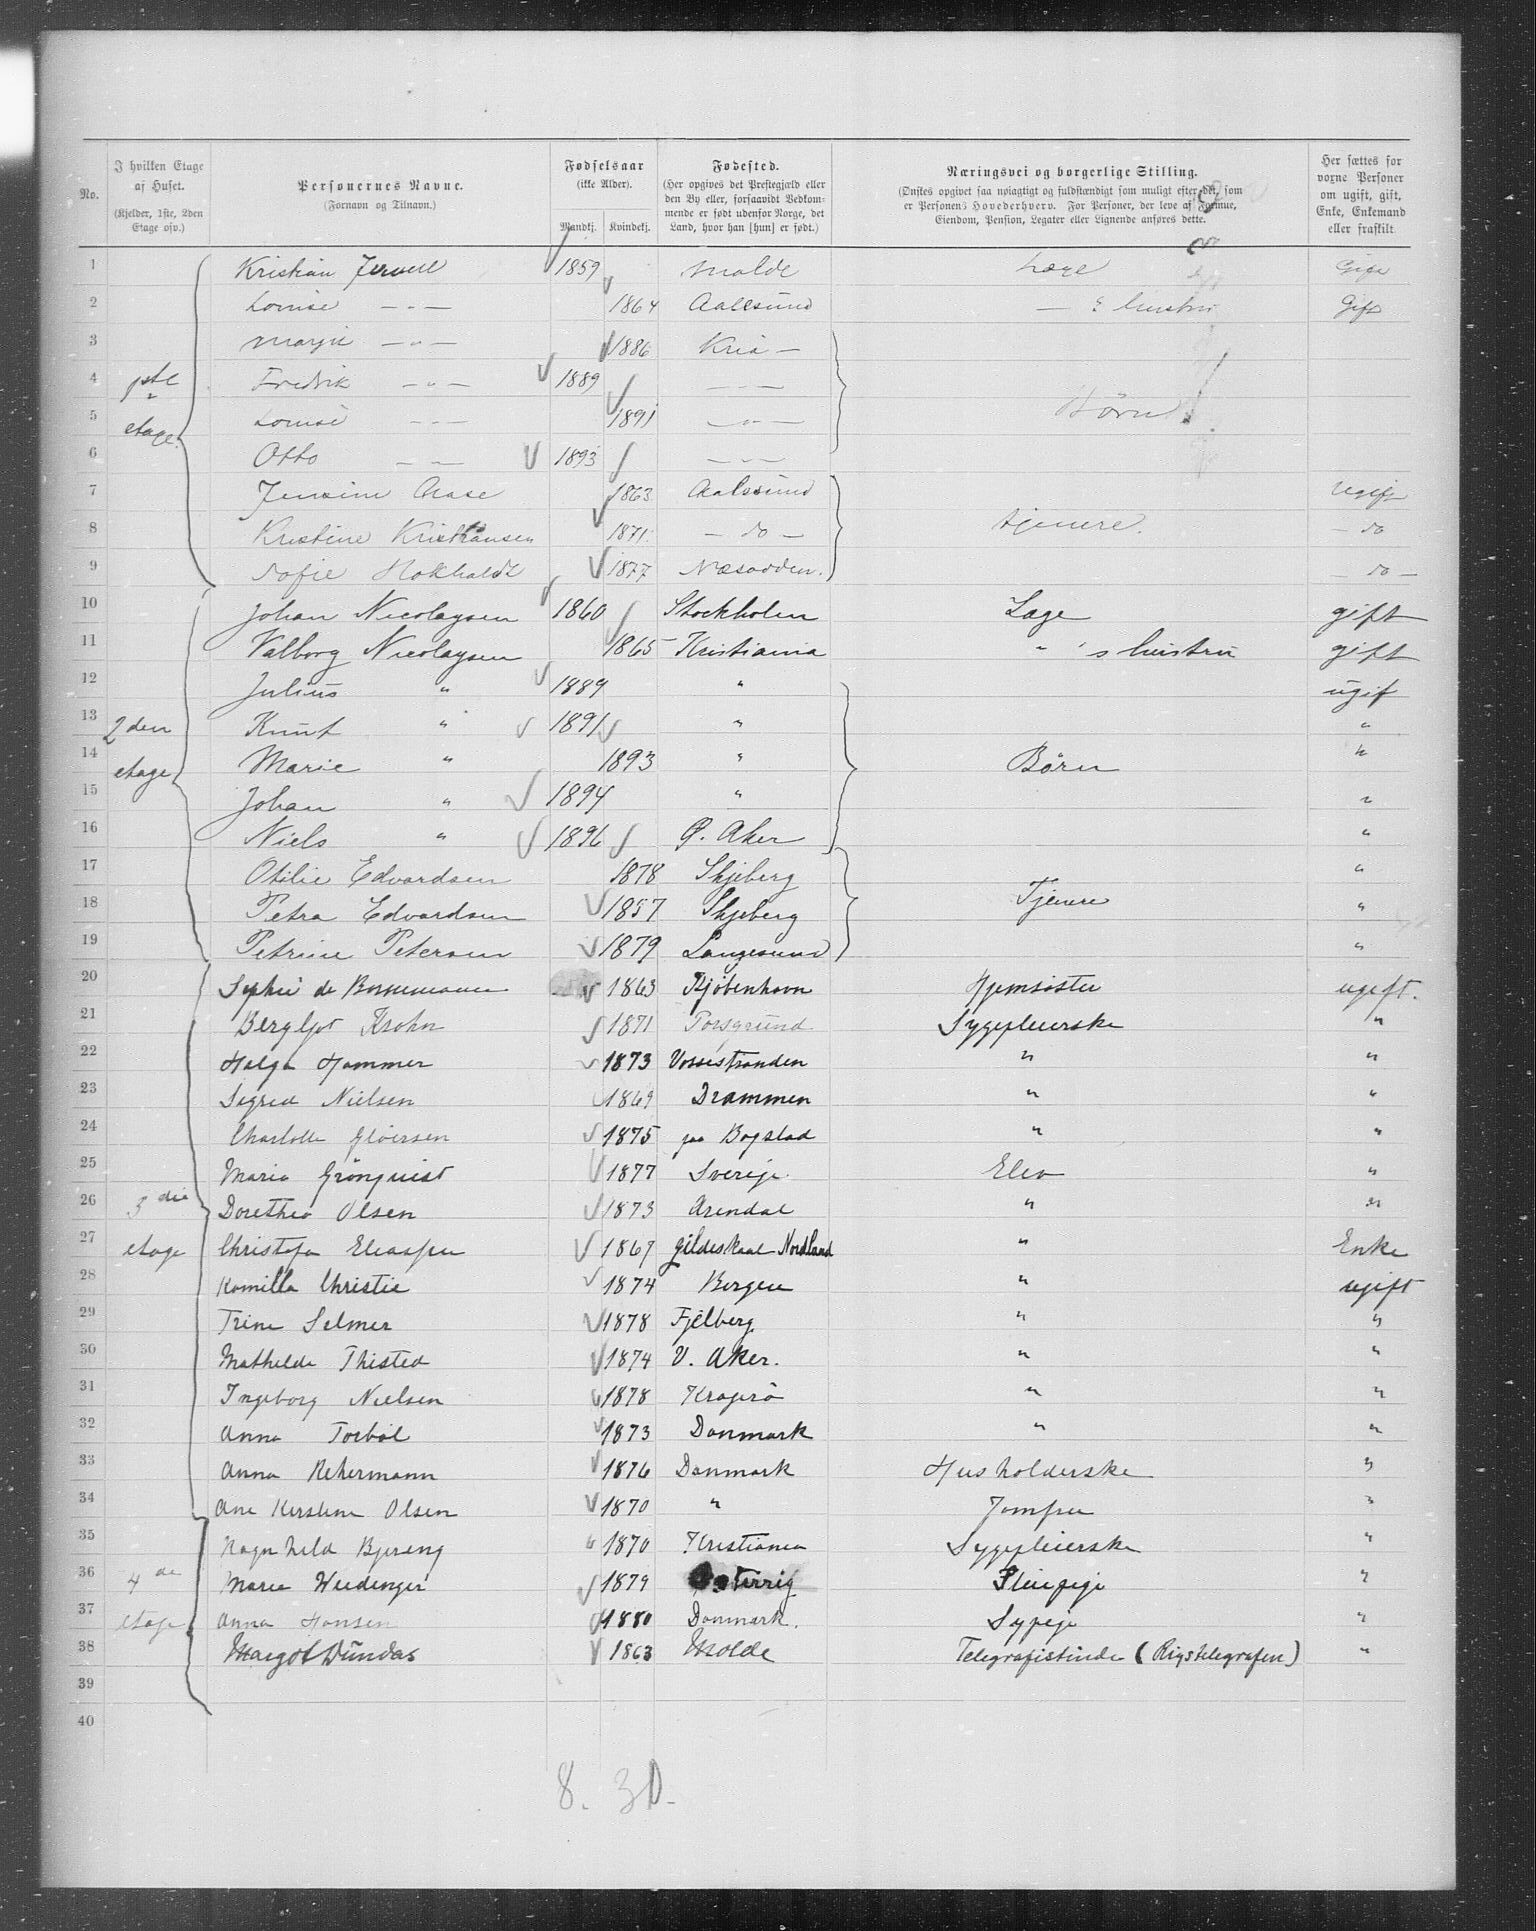 No. | I hvilken Etage af Huset. (Kjelder, 1ste, 2den Etage osv.) | Personernes Navne. (Fornavn og Tilnavn.) | Fødselsaar (ikke Alder). Mandkj. Kvindekj. | Fødested. (Her opgives det Prestegjæld eller den By eller, forsaavidt Vedkommende er født udenfor Norge, det Land, hvor han [hun] er født.) | Næringsvei og borgerlige Stilling. (Ønskes opgivet saa nøiagtigt og fuldstændigt som muligt efter det, som er Personens Hovederhverv. For Personer, der leve af Formue, Eiendom, Pension, Legater eller Lignende anføres dette. | Her sættes for voxne Personer om ugift, gift, Enke, Enkemand eller fraskilt.
1 Kristian Jervell 1859 Molde Læge Gift
2 Louise — " — 1864 Aalesund — s hustru Gift
3 Margit — " — 1886 Kria —
4 1ste Fredrik — " — 1889 — " —
5 etage. Louise — " — 1891 — " — Børn
6 Otto — " — 1893 — " —
7 Jensine Aase 1863 Aalesund ugift
8 Kristine Kristiansen 1871 — do — tjenere. — do
9 Sofie Hokholdt 1877 Næsodden. — do —
10 Johan Nicolaysen 1860 Stockholm Læge gift
11 Valborg Nicolaysen 1865 Kristiania " 's hustru gift
12 Julius " 1889 " ugif
13 2den Knut " 1891 " "
14 etage Marie " 1893 " Børn "
15 Johan " 1894 " "
16 Niels " 1896 Ø. Aker "
17 Otilie Edvardsen 1878 Skjeberg "
18 Petra Edvardsen 1857 Skjeberg Tjenere "
19 Petrine Petersen 1879 Langesund "
20 Sophie de Bornemann 1863 Kjøbenhavn Hjemsøster ugift.
21 Bergljot Krohn 1871 Porsgrund Sygepleierske "
22 Helga Hammer 1873 Vossestranden " "
23 Sigrid Nielsen 1869 Drammen " "
24 Charlotte Gløersen 1875 paa Bogstad " "
25 Maria Grönquist 1877 Sverige. Elev "
26 3die Dorethea Olsen 1873 Arendal " "
27 etage Christofa Eliassen 1867 Gildeskaal Nordland " Enke
28 Kamilla Christie 1874 Bergen " ugift
29 Trine Selmer 1878 Fjelberg " "
30 Mathilde Thisted 1874 V. Aker. " "
31 Ingeborg Nielsen 1878 Kragerö " "
32 Anna Torböl 1873 Danmark " "
33 Anna Rehermann 1876 Danmark Husholderske "
34 Ane Kirstine Olsen 1870 " Jomfru "
35 Ragnhild Bjereng 1870 Kristiania Sygepleierske "
36 4de Marie Weidinger 1879 Østerrig Stuepige "
37 etage Anna Hansen 1880 Danmark. Sypige "
38 Margot Dundas 1863 Molde Telegrafistinde (Rigstelegrafen) "
39
40
8. 30.